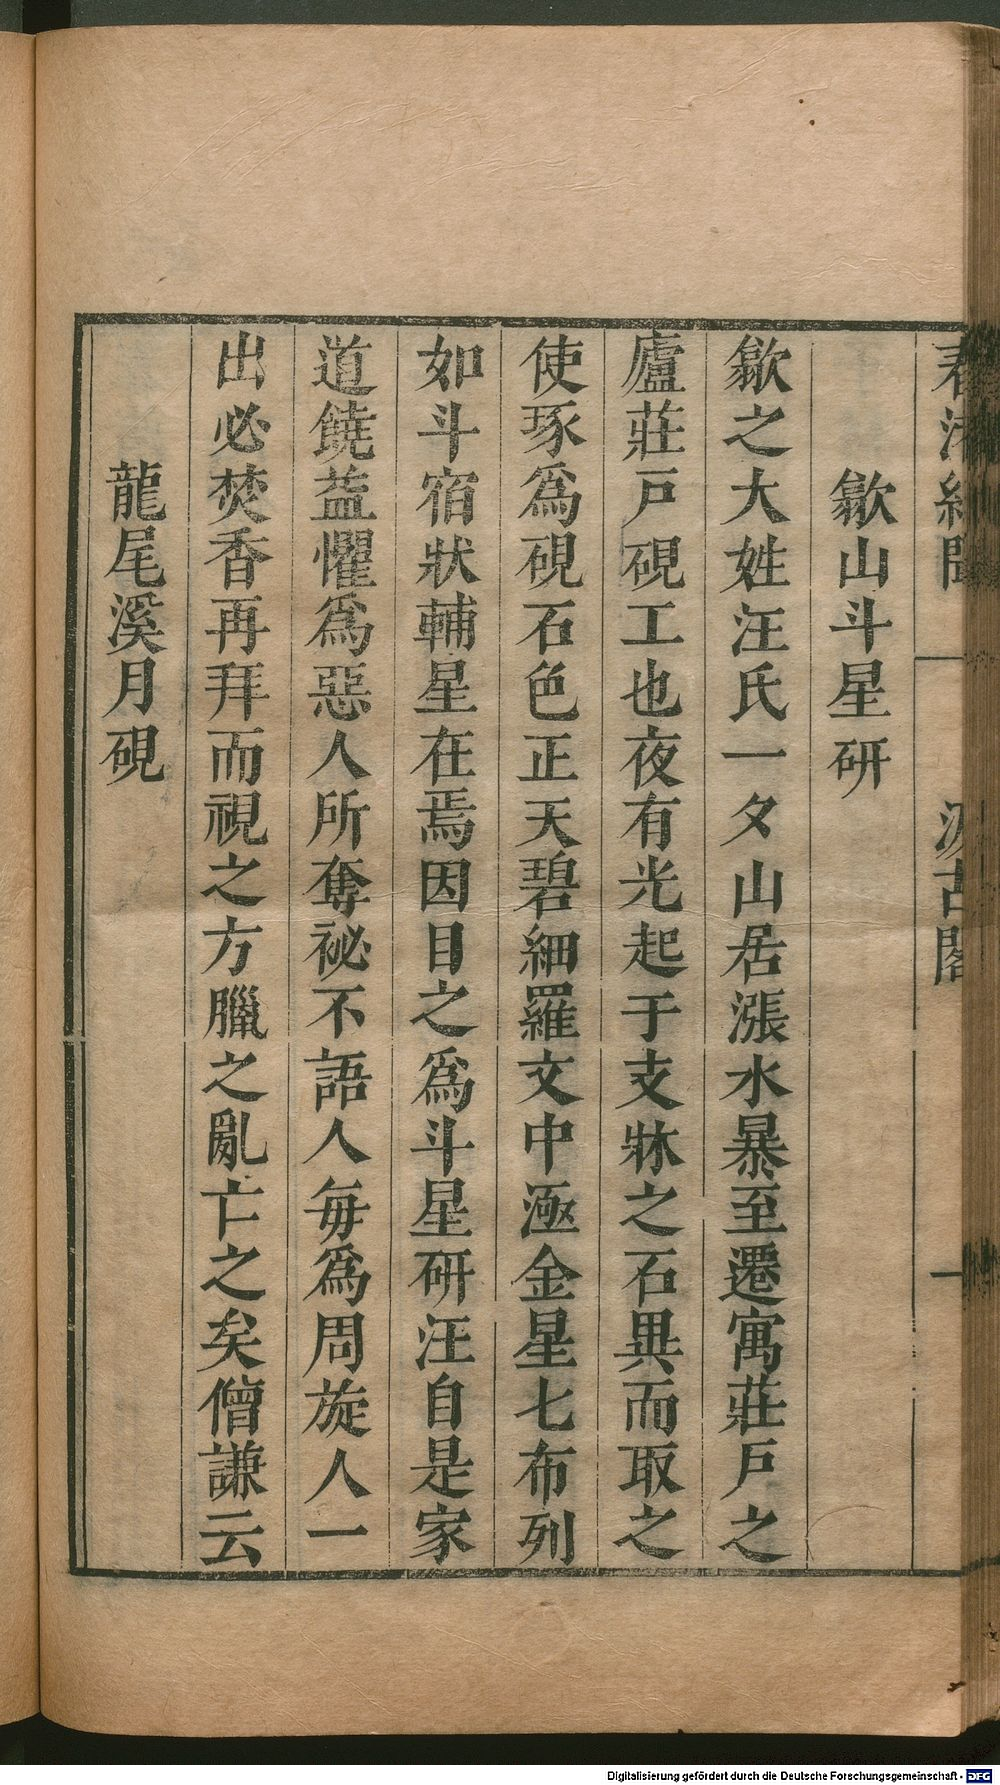 春渚紀聞 一 汲古閣
歙山斗星研
歙之大姓汪氏一夕山居漲水暴至遷寓莊戶之
廬莊戶硯工也夜有光起于支牀之石異而取之
使琢爲硯石色正天碧細羅文中涵金星七布列
如斗宿狀輔星在焉因目之爲斗星研汪自是家
道饒益懼爲惡人所奪祕不語人每爲周旋人一
出必焚香再拜而視之方臘之亂亡之矣僧謙云
龍尾溪月硯
Digitalisierung gefördert durch die Deutsche Forschungsgemeinschaft - DFG